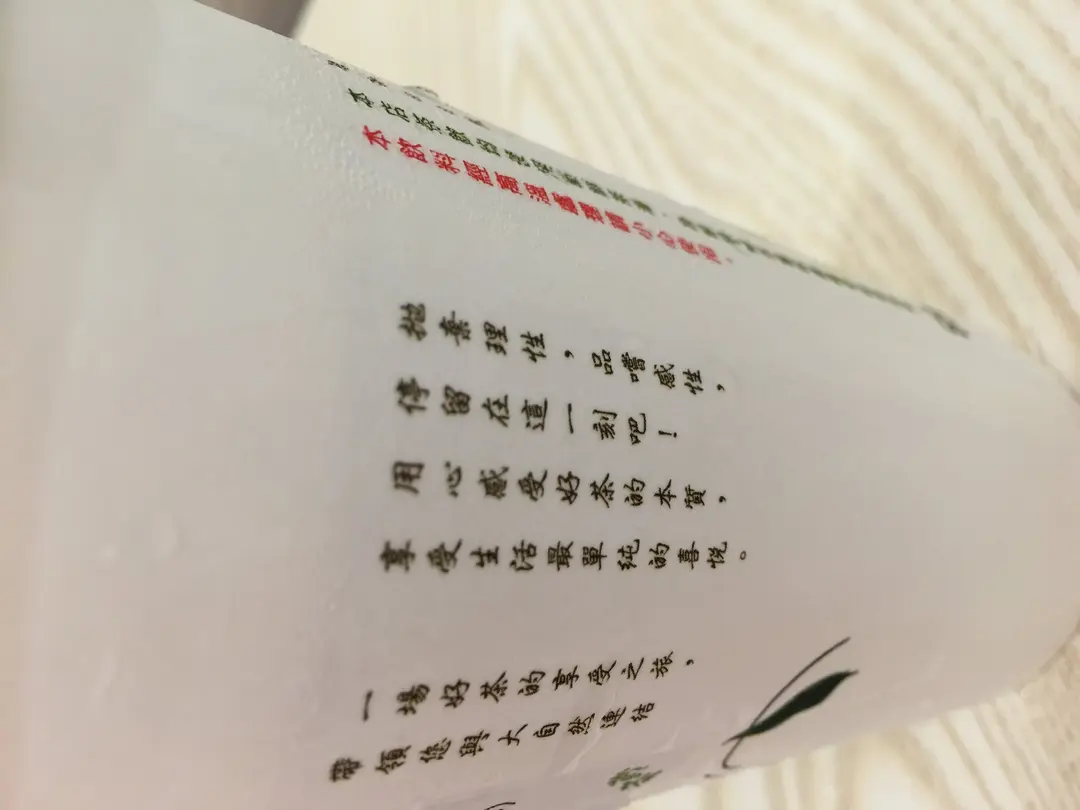 本店茶飲
本飲料經高溫處理請小心
拋棄理性，品嚐感性，
停留在這一刻吧！
用心感受好茶的本質，
享受生活最單純的喜悅。
一場好茶的享受之旅，
帶領您與大自然連結